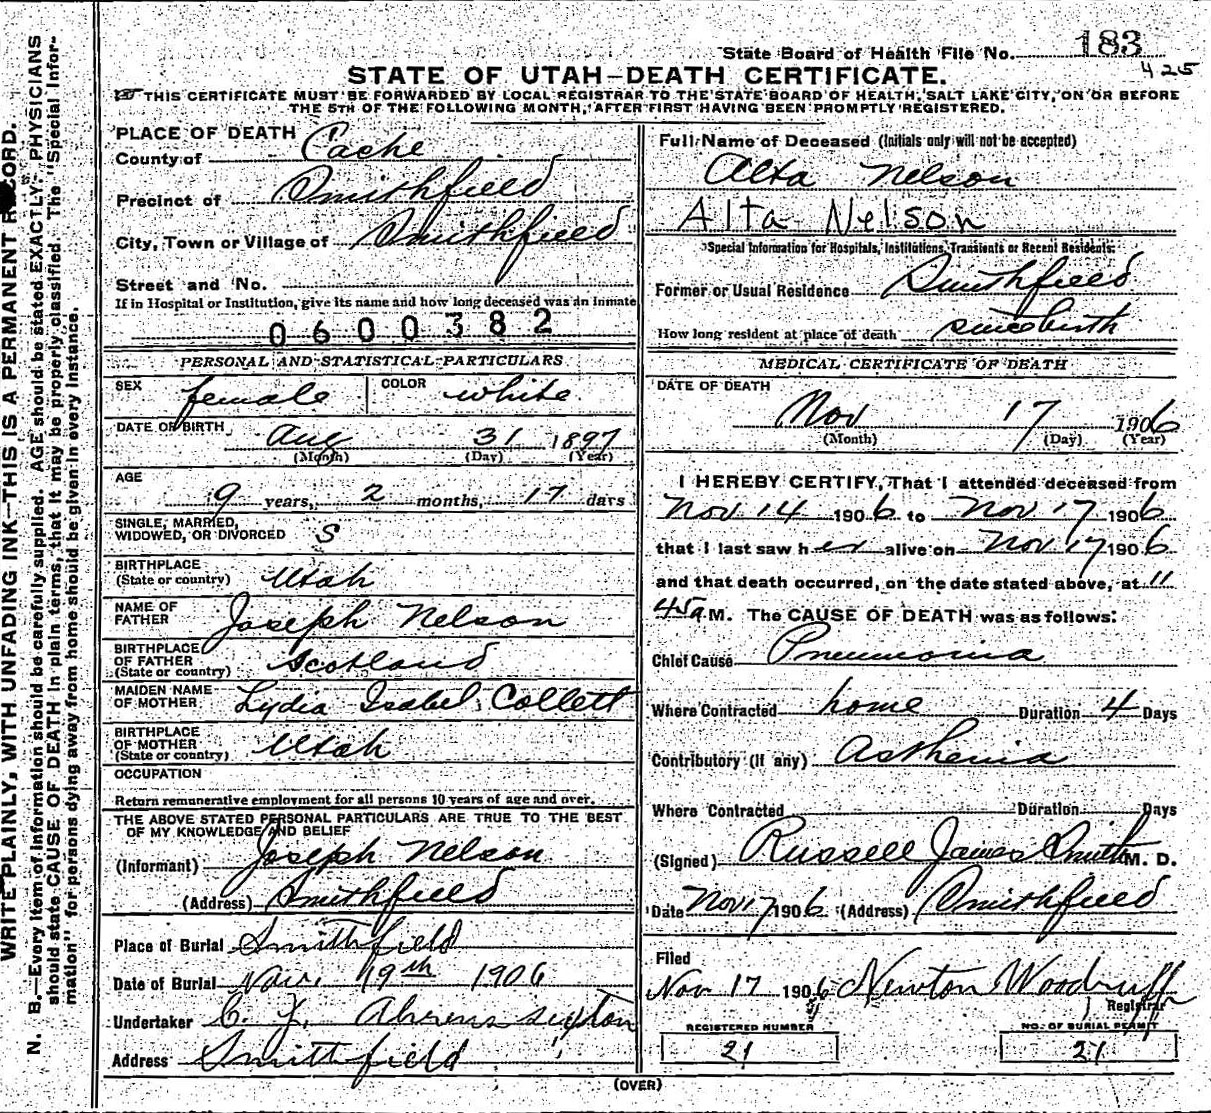 State Board of Health File No. 183
425
STATE OF UTAH—DEATH CERTIFICATE.
THIS CERTIFICATE MUST BE FORWARDED BY LOCAL REGISTRAR TO THE STATE BOARD OF HEALTH, SALT LAKE CITY, ON OR BEFORE
THE 5TH OF THE FOLLOWING MONTH, AFTER FIRST HAVING BEEN PROMPTLY REGISTERED.
WRITE PLAINLY, WITH UNFADING INK—THIS IS A PERMANENT RECORD.
N. B.—Every item of information should be carefully supplied. AGE should be stated EXACTLY. PHYSICIANS
should state CAUSE OF DEATH in plain terms, that it may be properly classified. The "Special Infor-
mation" for persons dying away from home should be given in every instance.
PLACE OF DEATH
County of Cache
Precinct of Smithfield
City, Town or Village of Smithfield
Street and No.
If in Hospital or Institution, give its name and how long deceased was an inmate
0600382
PERSONAL AND STATISTICAL PARTICULARS
SEX female COLOR white
DATE OF BIRTH Aug 31 1897
(Month) (Day) (Year)
AGE
9 years, 2 months, 17 days
SINGLE, MARRIED,
WIDOWED, OR DIVORCED S
BIRTHPLACE
(State or country) Utah
NAME OF
FATHER Joseph Nelson
BIRTHPLACE
OF FATHER
(State or country) Scotland
MAIDEN NAME
OF MOTHER Lydia Isabel Collett
BIRTHPLACE
OF MOTHER
(State or country) Utah
OCCUPATION
Return remunerative employment for all persons 10 years of age and over.
THE ABOVE STATED PERSONAL PARTICULARS ARE TRUE TO THE BEST
OF MY KNOWLEDGE AND BELIEF
(Informant) Joseph Nelson
(Address) Smithfield
Place of Burial Smithfield
Date of Burial Nov. 19th 1906
Undertaker C. Y. Ahrens sexton
Address Smithfield
Full Name of Deceased (Initials only will not be accepted)
Alta Nelson
Alta Nelson
Special Information for Hospitals, Institutions, Transients or Recent Residents:
Former or Usual Residence Smithfield
How long resident at place of death since birth
MEDICAL CERTIFICATE OF DEATH
DATE OF DEATH
Nov 17 1906
(Month) (Day) (Year)
I HEREBY CERTIFY, That I attended deceased from
Nov 14 1906 to Nov 17 1906
that I last saw her alive on Nov 17 1906
and that death occurred, on the date stated above, at 11
45 a M. The CAUSE OF DEATH was as follows:
Chief Cause Pneumonia
Where Contracted home Duration 4 Days
Contributory (if any) Asthenia
Where Contracted Duration Days
(Signed) Russell James Smith M. D.
Date Nov 17 1906 (Address) Smithfield
Filed
Nov 17 1906 Newton Woodruff
Registrar
REGISTERED NUMBER
21
NO. OF BURIAL PERMIT
21
(OVER)